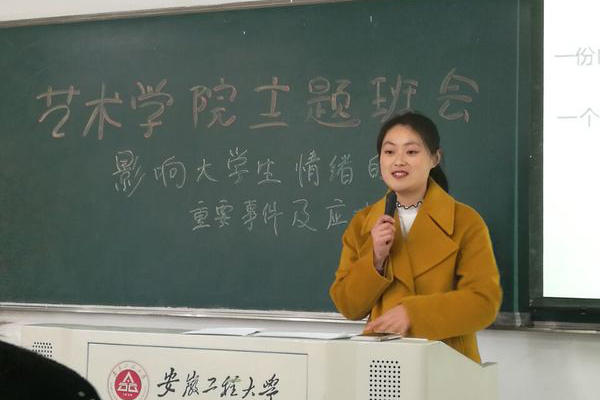 艺术学院主题班会
影响大学生情绪的
重要事件及应
一份
一个
安徽工程大学